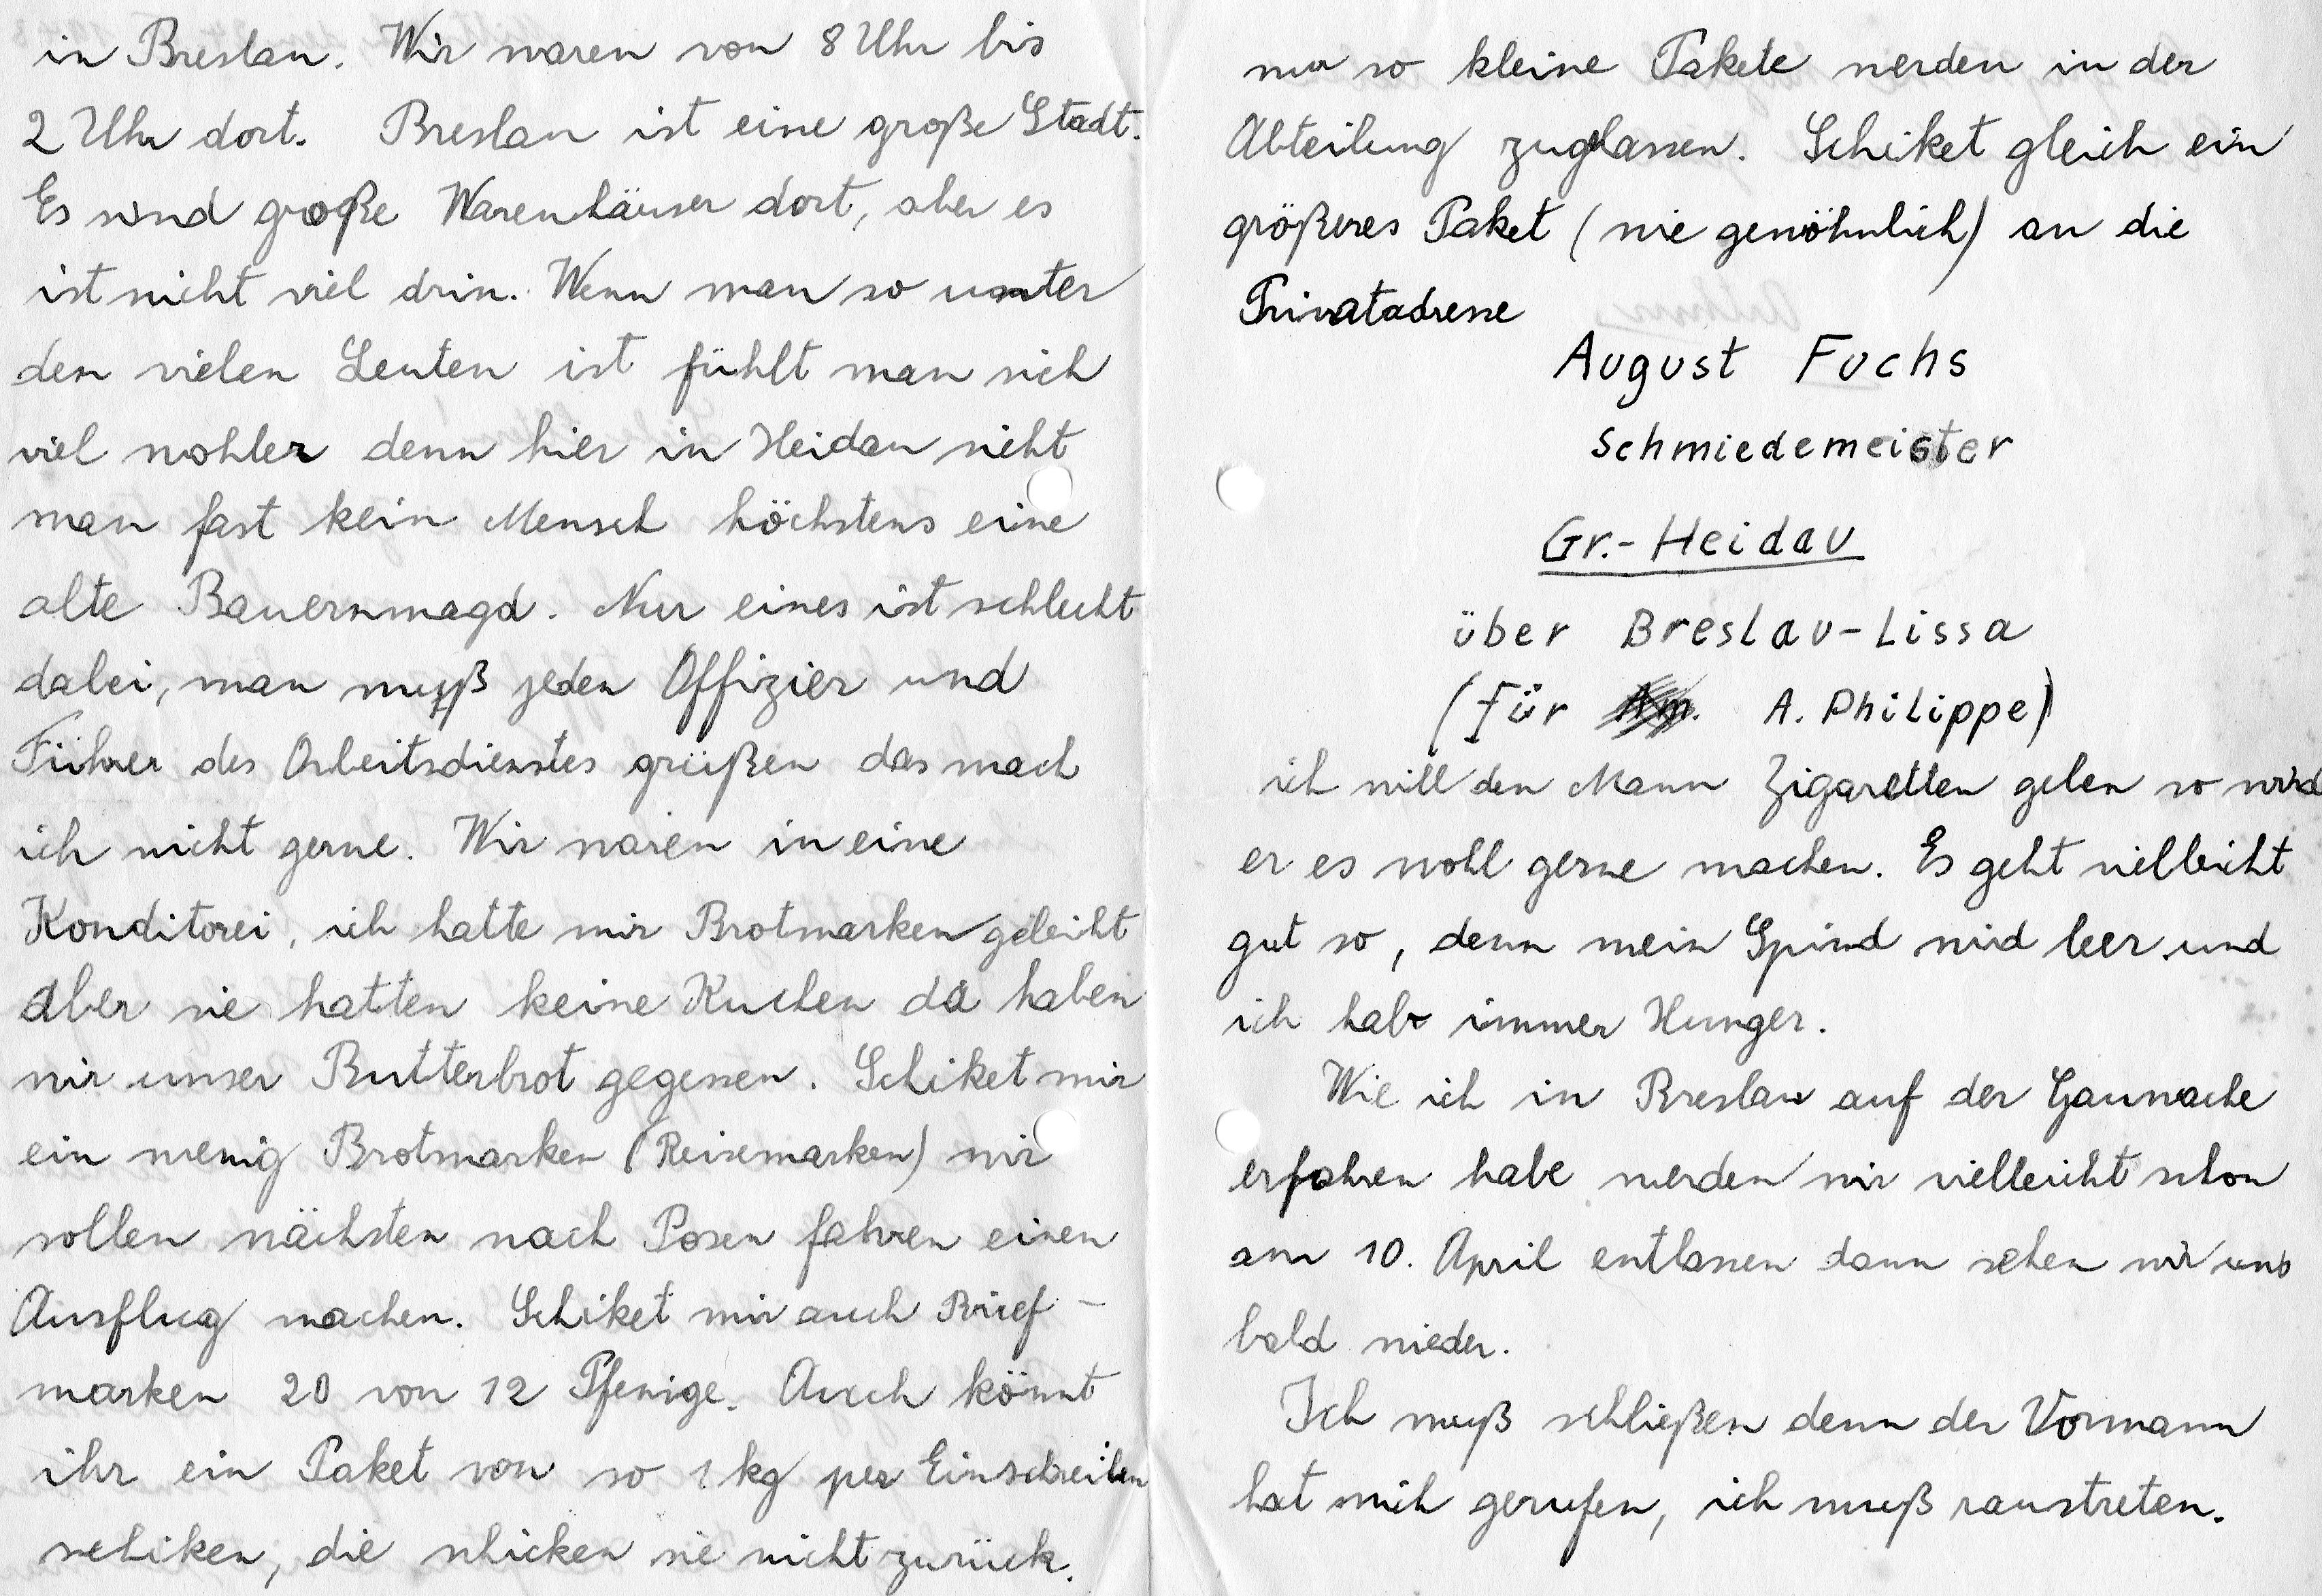 in Breslau. Wir waren von 8 Uhr bis
2 Uhr dort. Breslau ist eine große Stadt.
Es sind große Warenhäuser dort, aber es
ist nicht viel drin. Wenn man so unter
den vielen Leuten ist fühlt man sich
viel wohler denn hier in Heidau sieht
man fast kein Mensch höchstens eine
alte Bauernmagd. Nur eines ist schlecht
dabei, man muß jeden Offizier und
Führer des Arbeitsdienstes grüßen das mach
ich nicht gerne. Wir waren in eine
Konditorei, ich hatte mir Brotmarken geleiht
aber sie hatten keine Kuchen da haben
wir unser Butterbrot gegessen. Schiket mir
ein wenig Brotmarken (Reisemarken) wir
sollen nächsten nach Posen fahren einen
Ausflug machen. Schiket mir auch Brief-
marken 20 von 12 Pfenige. Auch könnt
ihr ein Paket von so 1 kg per Einschreiben
schiken, die schicken sie nicht zurück.
nur so kleine Pakete werden in der
Abteilung zugelassen. Schiket gleich ein
größeres Paket (wie gewöhnlich) an die
Privatadresse
August Fuchs
Schmiedemeister
Gr.-Heidau
über Breslau-Lissa
(Für A. Philippe)
ich will den Mann Zigaretten geben so wird
er es wohl gerne machen. Es geht vielleicht
gut so, denn mein Spind wird leer und
ich hab immer Hunger.
Wie ich in Breslau auf der Gauwache
erfahren habe werden wir vielleicht schon
am 10. April entlassen dann sehen wir uns
bald wieder.
Ich muß schließen denn der Vormann
hat mich gerufen, ich muß raustreten.